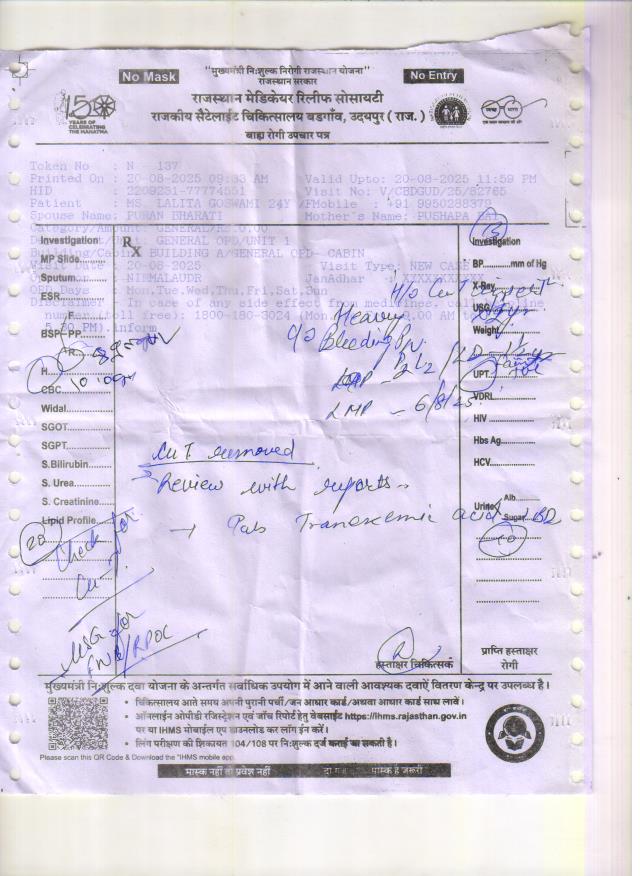 "मुख्यमंत्री निःशुल्क निरोगी राजस्थान योजना"
No Mask
राजस्थान सरकार
No Entry
राजस्थान मेडिकेयर रिलीफ सोसायटी
150 YEARS OF CELEBRATING THE MAHATMA
राजकीय सैटेलाईट चिकित्सालय बडगाँव, उदयपुर ( राज. )
बाह्य रोगी उपचार पत्र
Token No : N - 137
Printed On : 20-08-2025 09:33 AM Valid Upto: 20-08-2025 11:59 PM
HID : 2209231-77774551 Visit No: V/CBDGUD/25/82765
Patient : MS. LALITA GOSWAMI 24Y /F Mobile : +91 9950288379
Spouse Name: PURAN BHARATI Mother's Name: PUSHAPA BAI
Category/Amount: GENERAL/RS.0.00
GENERAL OPD/UNIT 1
BUILDING A/GENERAL OPD- CABIN
Visit Date : 20-08-2025 Visit Type: NEW CASE
NIRMALAUDR JanAadhar
OPD Days : Mon,Tue,Wed,Thu,Fri,Sat,Sun
In case of any side effect from
number(toll free): 1800-180-3024 (Mon
5.30 PM).inform
Investigation
MP Slide
Sputum
ESR
BSF-PP
H
CBC
Widal
SGOT
SGPT
S.Bilirubin
S. Urea
S. Creatinine
Lipid Profile
Rx
H/o Cu T insert
Heavy
c/o Bleeding P/V
LMP - 6/8/25
Cu T removed
Review with reports
→ Tab Tranexemic acid BD
20
Check for
Cu-T
USG for
FWB/RPOC
Investigation
BP mm of Hg
X-Ray
USG
Weight
UPT
VDRL
HIV
Hbs Ag
HCV
Urine Alb
Sugar
10
हस्ताक्षर चिकित्सक
प्राप्ति हस्ताक्षर
रोगी
मुख्यमंत्री निःशुल्क दवा योजना के अन्तर्गत सर्वाधिक उपयोग में आने वाली आवश्यक दवाऐं वितरण केन्द्र पर उपलब्ध है।
• चिकित्सालय आते समय अपनी पुरानी पर्ची/जन आधार कार्ड/अथवा आधार कार्ड साथ लावें।
• ऑनलाईन ओपीडी रजिस्ट्रेशन एवं जाँच रिपोर्ट हेतु वेबसाईट https://ihms.rajasthan.gov.in
पर या IHMS मोबाईल एप डाउनलोड कर लॉग ईन करें।
• लिंग परीक्षण की शिकायत 104/108 पर निःशुल्क दर्ज कराई जा सकती है।
Please scan this QR Code & Download the "IHMS mobile app.
मास्क नहीं तो प्रवेश नहीं
मास्क है जरूरी